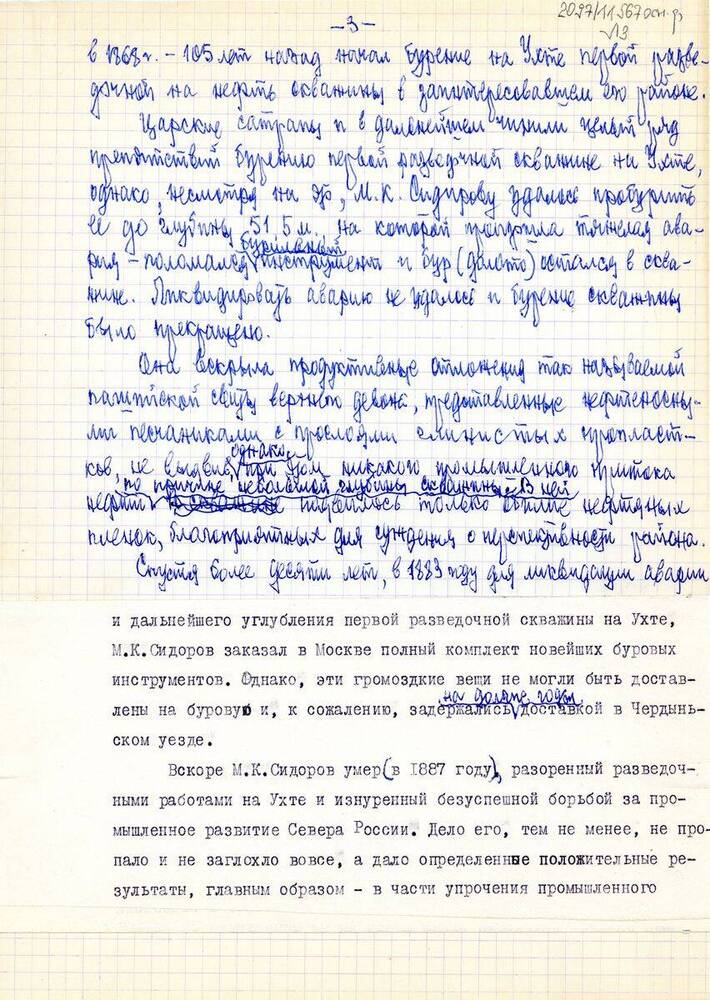 -3-
2097/11567осн.ф
13
в 1868г. - 105 лет назад начал бурение на Ухте первой разве-
дочной на нефть скважины в заинтересовавшем его районе.
Царские сатрапы и в дальнейшем чинили целый ряд
препятствий бурению первой разведочной скважине на Ухте,
однако, несмотря на это, М.К. Сидорову удалось пробурить
её до глубины 51,5 м., на которой произошла тяжелая ава-
бурильный
рия - поломался инструмент и бур (долото) остался в сква-
жине. Ликвидировать аварию не удалось и бурение скважины
было прекращено.
Она вскрыла продуктивные отложения так называемой
пашийской свиты верхнего девона, представленные нефтеносны-
ми песчаниками с прослоями глинистых пропласт-
однако
ков, не выявив, при этом никакого промышленного притока
по причине небольшой глубины скважины. В ней
нефти имелось только обилие нефтяных
пленок, благоприятных для суждения о перспективности района.
Спустя более десяти лет, в 1883 году для ликвидации аварии
и дальнейшего углубления первой разведочной скважины на Ухте,
М.К.Сидоров заказал в Москве полный комплект новейших буровых
инструментов. Однако, эти громоздкие вещи не могли быть достав-
на долгие годы
лены на буровую и, к сожалению, задержались доставкой в Чердынь-
ском уезде.
Вскоре М.К.Сидоров умер (в 1887 году), разоренный разведоч-
ными работами на Ухте и изнуренный безуспешной борьбой за про-
мышленное развитие Севера России. Дело его, тем не менее, не про-
пало и не заглохло вовсе, а дало определенные положительные ре-
зультаты, главным образом - в части упрочения промышленного